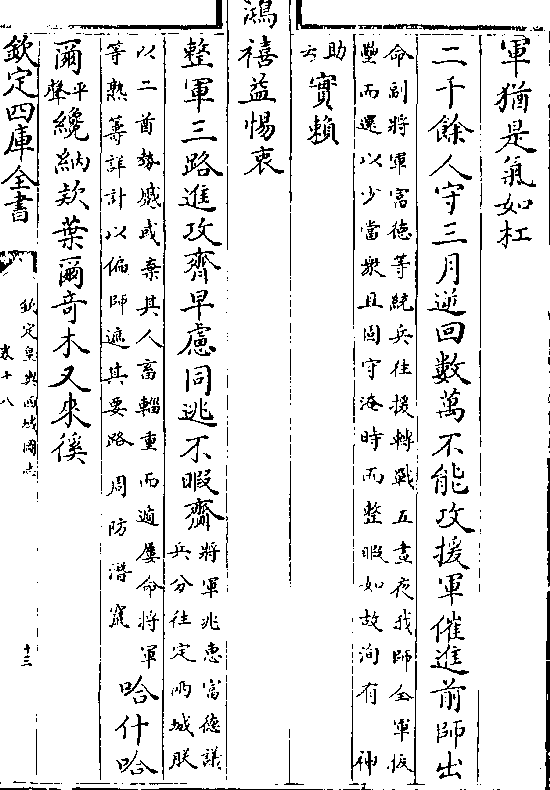 軍猶是氣如杠
二千餘人守三月逆回數萬不能攻援軍催進前師出
命副將軍富德等統兵往援轉戰五晝夜我師全軍振
壘而還以少當衆且固守淹時而整暇如故洵有神
助云實賴
鴻禧益惕衷
整軍三路進攻齊早慮同逃不暇齎將軍兆惠富德議
兵分往定兩城朕
以二酋勢蹙或棄其人畜輜重而遁屢命將軍
等熟籌詳計以偏師遮其要路周防潛竄哈什哈
爾平聲纔納款葉爾奇木又來徯
欽定四庫全書
欽定皇輿西域圖志
卷十八
十三